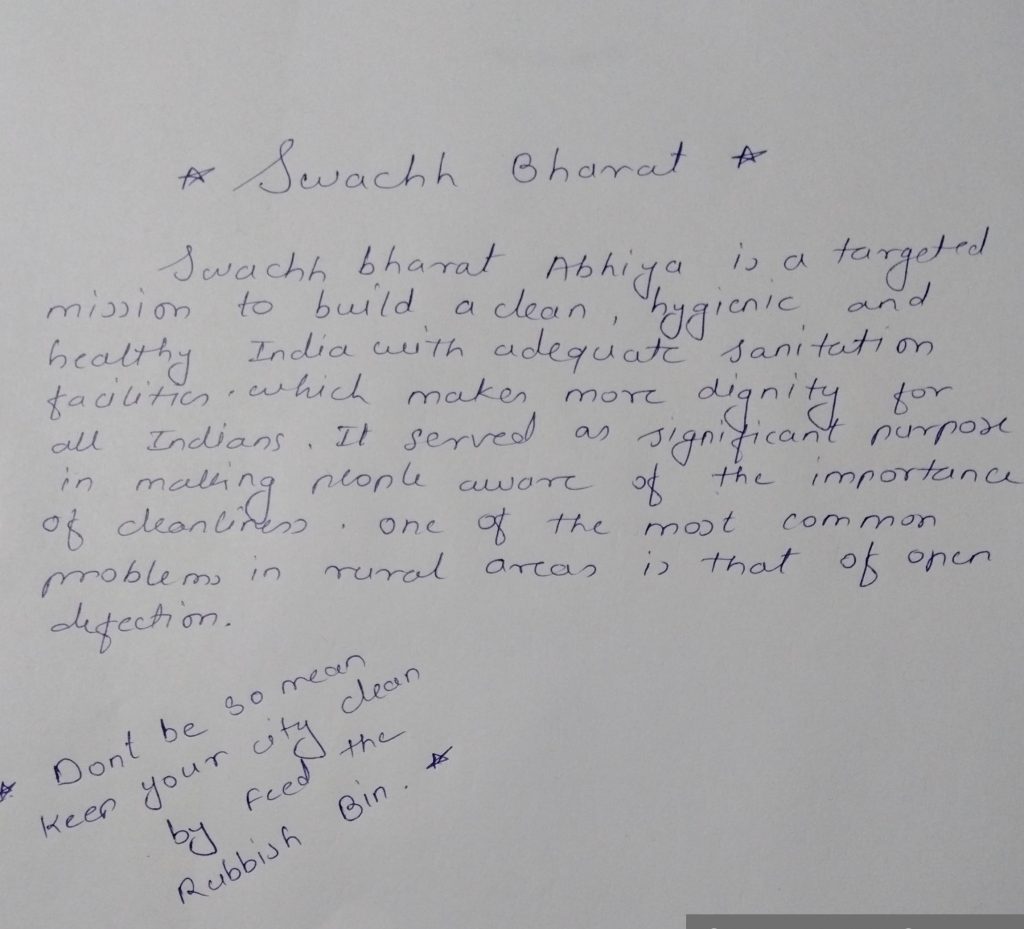 ☆ Swachh Bharat ☆
Swachh bharat Abhiya is a targeted
mission to build a clean, hygienic and
healthy India with adequate sanitation
facilities. which makes more dignity for
all Indians. It served as significant purpose
in making people aware of the importance
of cleanliness. one of the most common
problems in rural areas is that of open
defection.
☆ Dont be so mean
keep your city clean
by feed the
Rubbish Bin. ☆